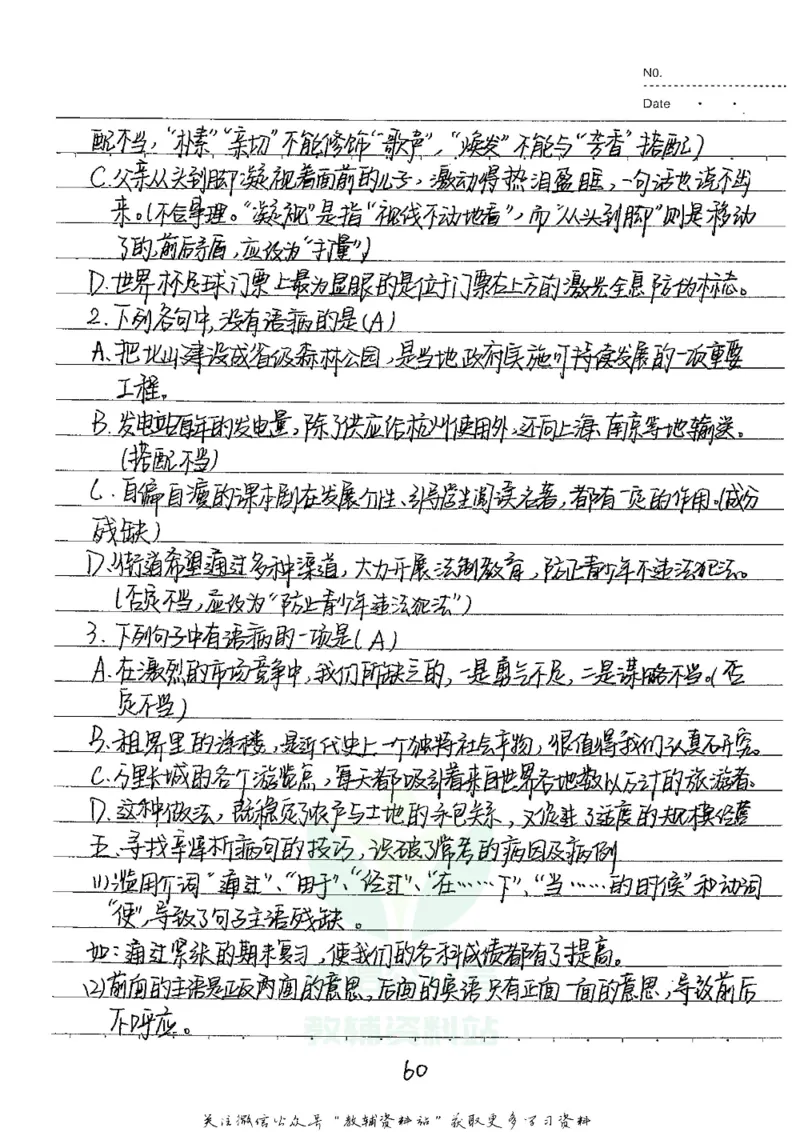 NO.
Date
配不当，“朴素”“亲切”不能修饰“歌声”，“焕发”不能与“芳香”搭配）
C.父亲从头到脚凝视着面前的儿子，激动得热泪盈眶，一句话也说不出
来。（不合事理。“凝视”是指“视线不动地看”，而“从头到脚”则是移动
了的，前后矛盾，应改为“打量”）
D.世界杯足球门票上最为显眼的是位于门票右上方的激光全息防伪标志。
2.下列各句中，没有语病的是（A）
A.把北山建设成省级森林公园，是当地政府实施可持续发展的一项重要
工程。
B.发电站每年的发电量，除了供应给杭州使用外，还向上海、南京等地输送。
（搭配不当）
C.自编自演的课本剧在发展个性、引导学生阅读名著，都有一定的作用。（成分
残缺）
D.街道希望通过多种渠道，大力开展法制教育，防止青少年不违法犯法。
（否定不当，应改为“防止青少年违法犯法”）
3.下列句子中有语病的一项是（A）
A.在激烈的市场竞争中，我们所缺乏的，一是勇气不足，二是谋略不当。（否
定不当）
B.租界里的洋楼，是近代史上一个独特社会产物，很值得我们认真研究。
C.万里长城的各个游览点，每天都吸引着来自世界各地数以万计的旅游者。
D.这种做法，既稳定了农户与土地的承包关系，又促进了适度的规模经营
五、寻找辛辟析病句的技巧，识破了常考的病因及病例
(1)滥用介词“通过”、“由于”、“经过”、“在……下”、“当……的时候”和动词
“使”，导致了句子主语残缺。
如：通过紧张的期末复习，使我们的各科成绩都有了提高。
(2)前面的主语是正反两面的意思，后面的宾语只有正面一面的意思，导致前后
不呼应。
教辅资料站
60
关注微信公众号“教辅资料站”获取更多学习资料